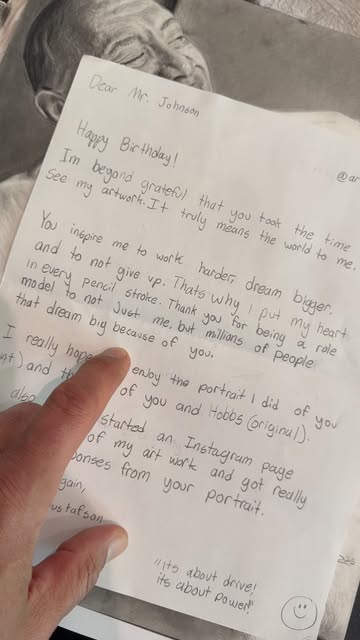 Dear Mr. Johnson
Happy Birthday!
@ar
Im beyond grateful that you took the time
see my artwork. It truly means the world to me.
You inspire me to work harder, dream bigger,
and to not give up. Thats why I put my heart
in every pencil stroke. Thank you for being a role
model to not just me, but millions of people
that dream big because of you.
I really hope enjoy the portrait I did of you
nt) and th of you and Hobbs (original).
also started an Instagram page
of my art work and got really
ponses from your portrait.
gain,
ustafson
"its about drive!
its about power!"